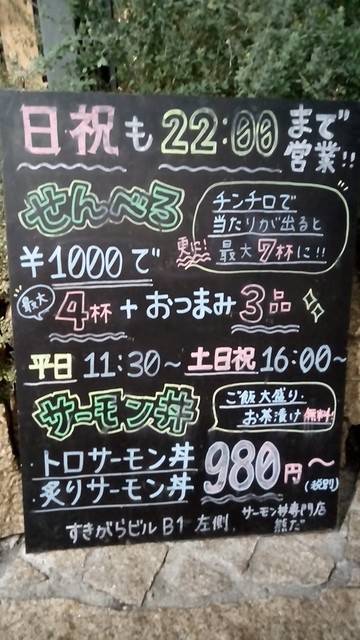 日祝も22:00まで営業!!
せんべろ
チンチロで
当たりが出ると
更に! 最大7杯に!!
¥1000で
最大4杯+おつまみ3品
平日11:30〜土日祝16:00〜
サーモン丼
ご飯大盛り・
お茶漬け無料
トロサーモン丼
炙りサーモン丼
980円〜
(税別)
すきがらビルB1左側
サーモン丼専門店
熊だ